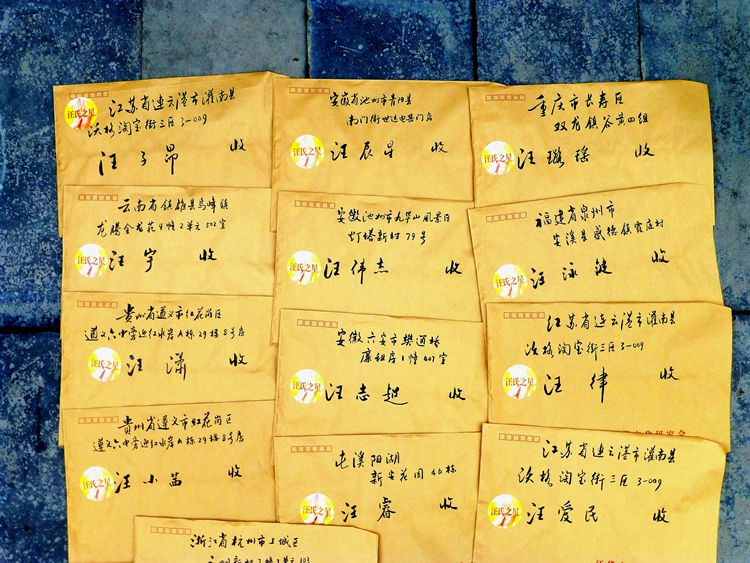 江苏省连云港市灌南县
沃格淘宝街三区3-009
汪子昂 收
汪氏之星
安徽省池州市青阳县
南门街世达电器门店
汪辰星 收
汪氏之星
重庆市长寿区
双龙镇谷黄四组
汪璐瑶 收
汪氏之星
云南省镇雄县乌峰镇
龙腾金龙花4幢2单元502室
汪宇 收
汪氏之星
安徽池州市九华山风景区
灯塔新村79号
汪伟杰 收
汪氏之星
福建省泉州市
安溪县感德镇霞庭村
汪泳键 收
汪氏之星
贵州省遵义市红花岗区
遵义六中旁迎红水岸A栋29楼8号房
汪潇 收
汪氏之星
安徽六安市樊通桥
廉租房1幢407室
汪志超 收
汪氏之星
江苏省连云港市灌南县
沃格淘宝街三区3-009
汪律 收
汪氏之星
贵州省遵义市红花岗区
遵义六中旁迎红水岸A栋29楼8号房
汪小茜 收
汪氏之星
屯溪阳湖
新安花园46栋
汪睿 收
汪氏之星
江苏省连云港市灌南县
沃格淘宝街三区3-009
汪爱民 收
汪氏之星
浙江省杭州市上城区